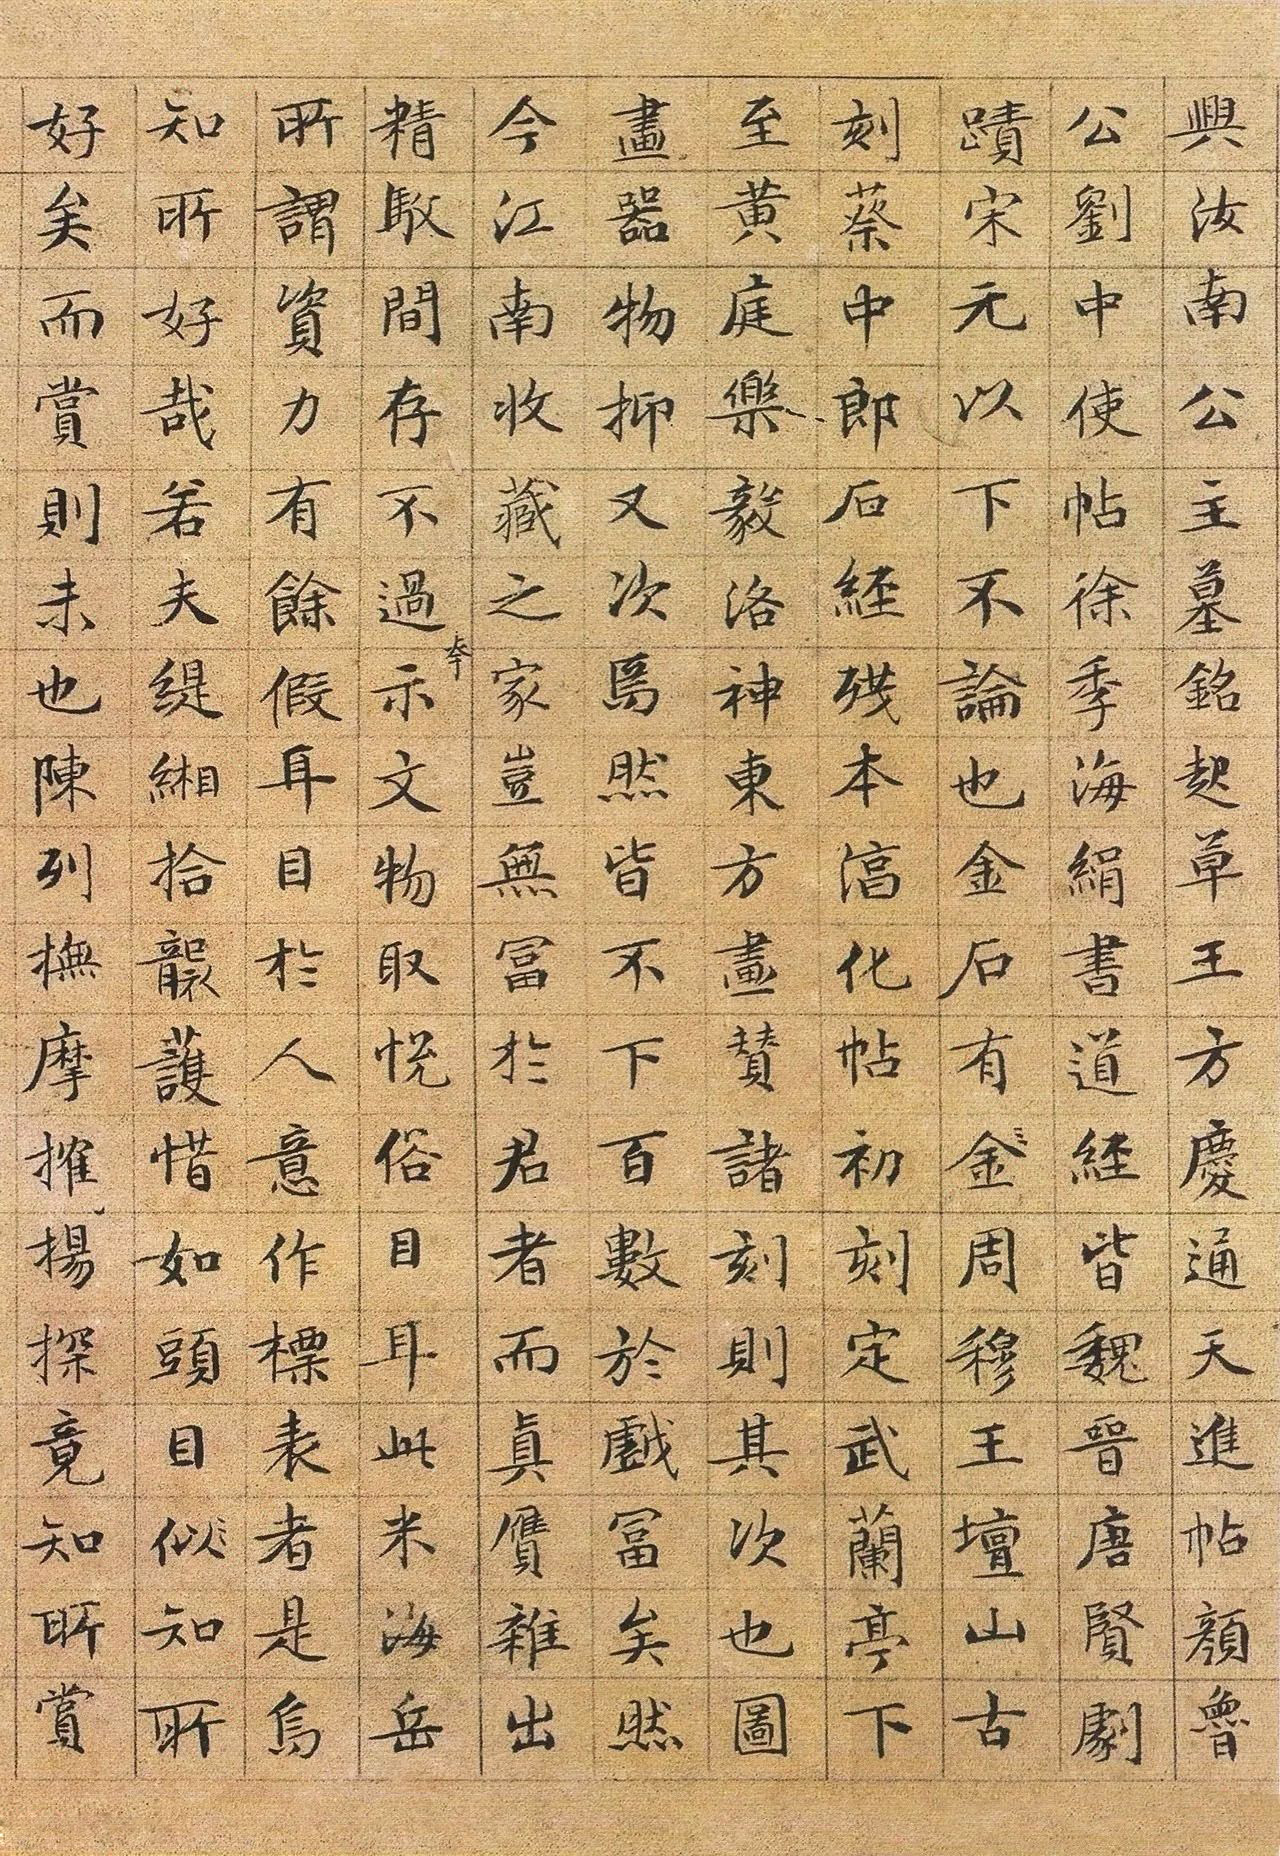 興汝南公主墓銘起草王方慶通天進帖顏魯
公劉中使帖徐季海絹書道經皆魏晉唐賢劇
蹟宋元以下不論也金石有金周穆王壇山古
刻蔡中郎石經殘本淳化帖初刻定武蘭亭下
至黃庭樂毅洛神東方畫贊諸刻則其次也圖
畫器物抑又次焉然皆不下百數於戲富矣然
今江南收藏之家豈無富於君者而真贋雜出
精駁間存不過夸示文物取悅俗目耳此米海岳
所謂資力有餘假耳目於人意作標表者是烏
知所好哉若夫緹緗拾襲護惜如頭目似知所
好矣而賞則未也陳列撫摩搉揚探竟知所賞